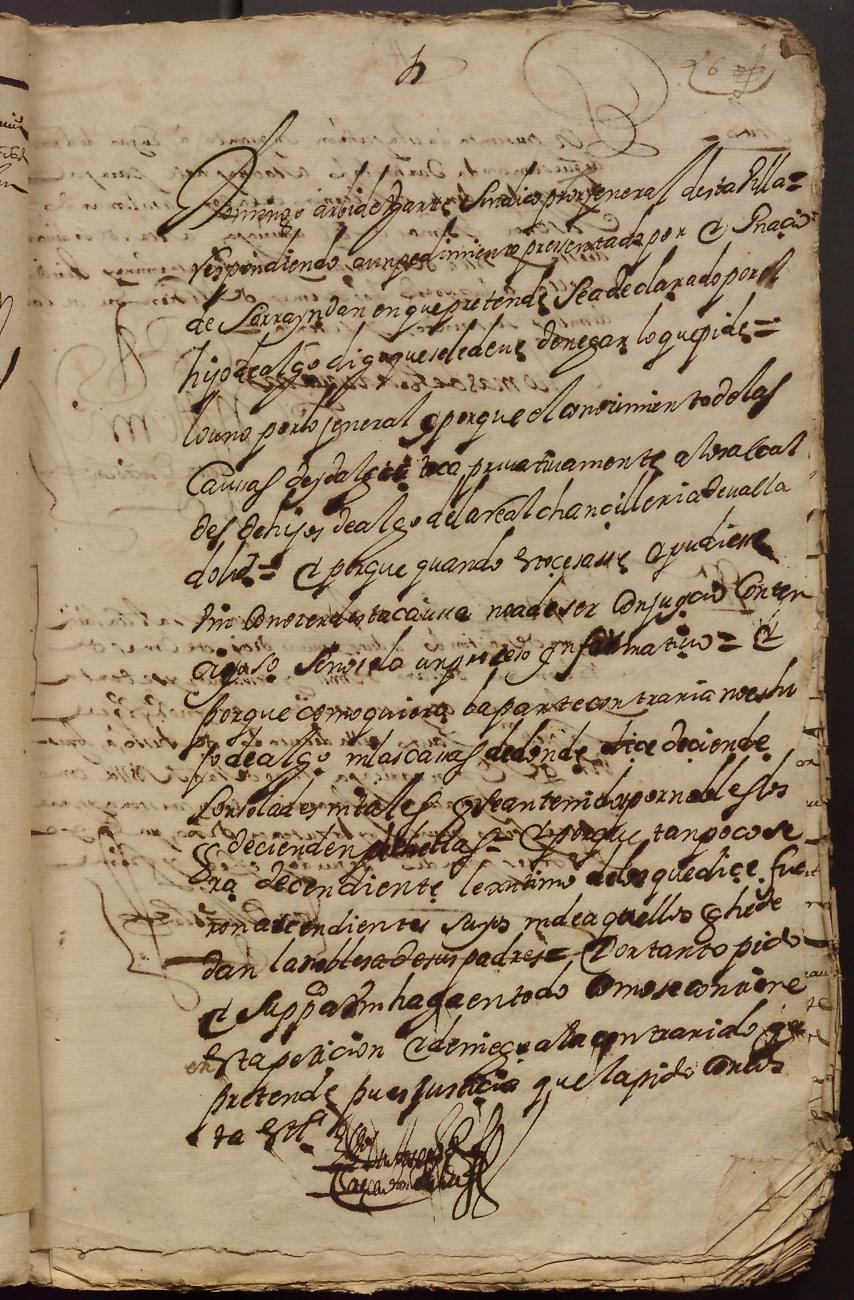 Domingo de Ugarte Sindico pror general desta Villa =
respondiendo a un pedimiento presentado por Ygnacio
de Sarrayndan en que pretende sea declarado por el
hijodealgo digo que se le deve denegar lo que pide =
lo uno por lo jeneral e porque el conocimiento de las
causas de toca privativamente a los alcal
des de hijos de algo de la real chancilleria de valla
dolid = e porque quando e pudiere
Vm conocer esta causa no a de ser con juycio conten
cioso sino solo un proceso ynformativo = e
porque como quiera la parte contraria no es hi
jo de algo ni las casas de donde dice deciende
son solares ni tales q sean tenidas por nobles los
q decienden de ellas = e porque tanpoco se
ra decendiente lexitimo de los que dice fue
ron ascendientes suyos ni de aquellos q here
dan la noblesa de sus padres = Por tanto pido
e suppco a Vm haga en todo como se contiene
en esta peticion e deniegue a la contraria lo que
pretende pues justicia que la pido con cos
ta Etc